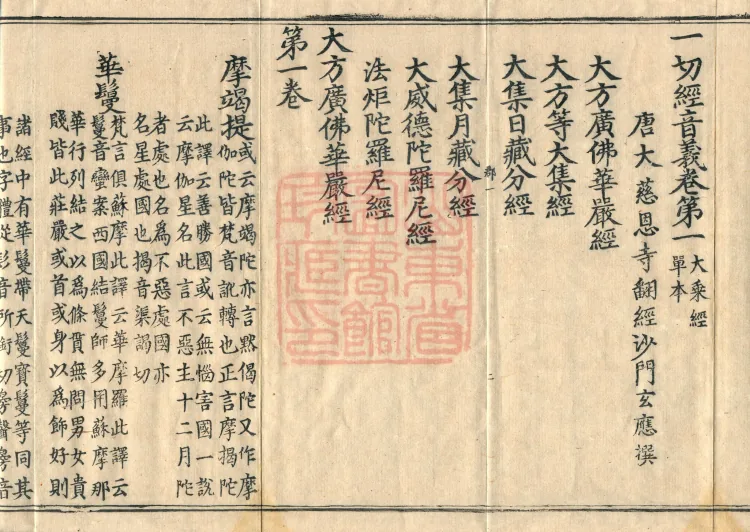 一切經音義卷第一 大乘經
單本
唐大慈恩寺翻經沙門玄應撰
大方廣佛華嚴經
大方等大集經
大集日藏分經
大集月藏分經
大威德陀羅尼經
法炬陀羅尼經
大方廣佛華嚴經
第一卷
摩竭提 或云摩竭陀亦言黙偈陀又作摩
伽陀皆梵音訛轉也正言摩揭陀
此譯云善勝國或云無惱害國一說
云摩伽星名此言不惡主十二月陀
者處也名為不惡處國亦
名星處國也揭音渠謁切
華鬘 梵言俱蘇摩此譯云華摩羅此譯云
鬘音蠻案西國結鬘師多用蘇摩那
華行列結之以為條貫無問男女貴
賤皆此莊嚴或首或身以為飾好則
諸經中有華鬘帶天鬘寶鬘等同其
事也字體從髟音所銜切